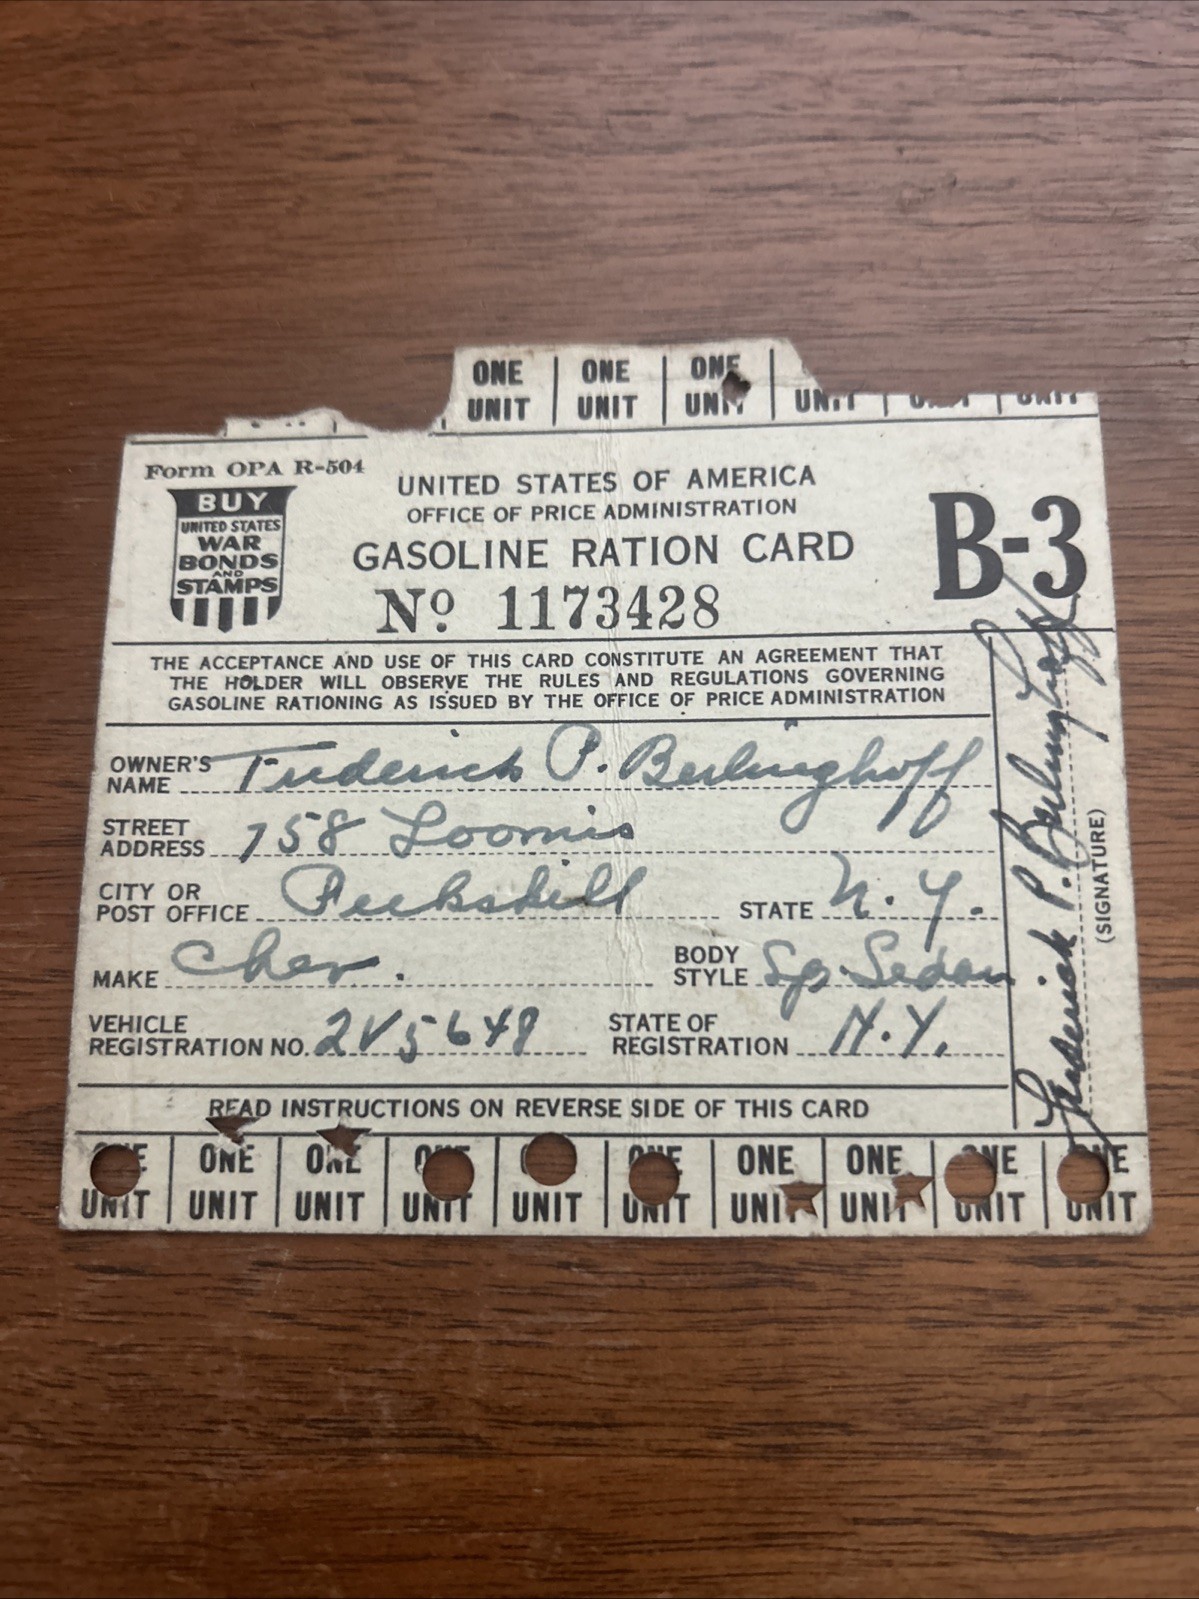 ONE ONE ONE
UNIT UNIT UNIT UNIT UNIT
Form OPA R-504
BUY
UNITED STATES
WAR
BONDS
AND
STAMPS
UNITED STATES OF AMERICA
OFFICE OF PRICE ADMINISTRATION
GASOLINE RATION CARD
No 1173428
B-3
THE ACCEPTANCE AND USE OF THIS CARD CONSTITUTE AN AGREEMENT THAT
THE HOLDER WILL OBSERVE THE RULES AND REGULATIONS GOVERNING
GASOLINE RATIONING AS ISSUED BY THE OFFICE OF PRICE ADMINISTRATION
OWNER'S NAME Frederick P. Berlinghoff
STREET ADDRESS 758 Loomis
CITY OR POST OFFICE Peekskill STATE N.Y.
MAKE Chev. BODY STYLE Sp. Sedan
VEHICLE REGISTRATION NO. 2V5648 STATE OF REGISTRATION N.Y.
Frederick P. Berlinghoff
(SIGNATURE)
READ INSTRUCTIONS ON REVERSE SIDE OF THIS CARD
ONE ONE ONE ONE ONE ONE ONE ONE ONE
UNIT UNIT UNIT UNIT UNIT UNIT UNIT UNIT UNIT UNIT